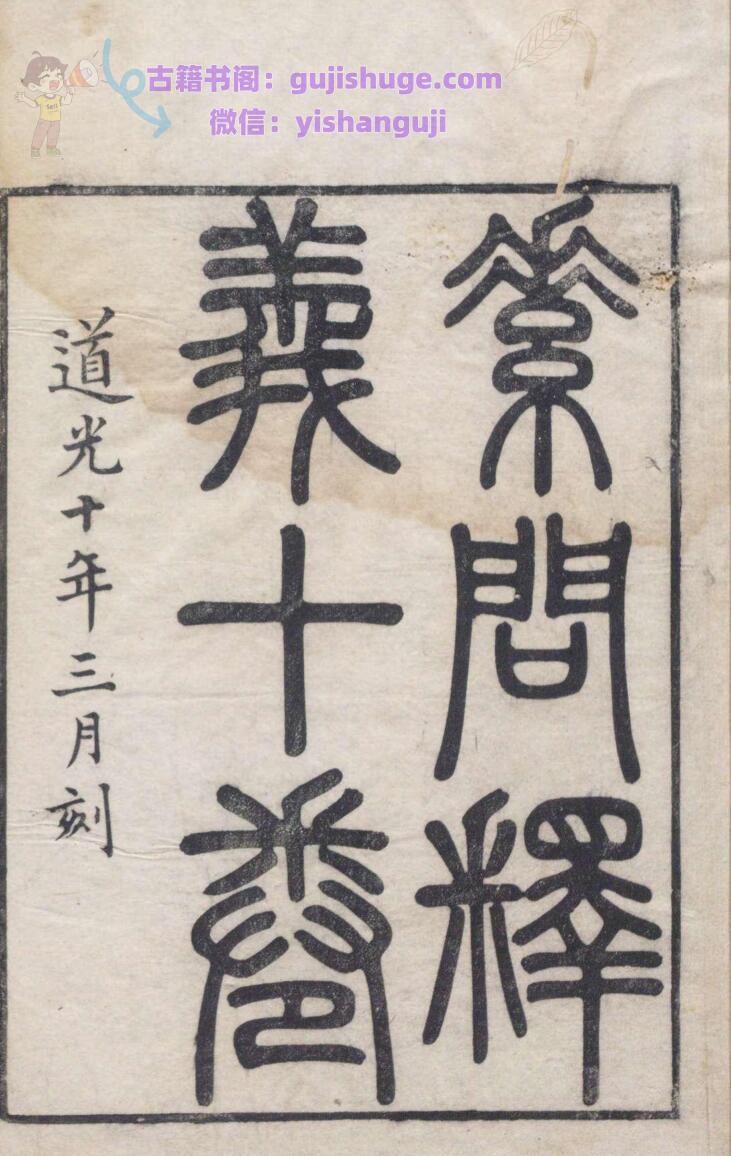 古籍书阁：gujishuge.com
微信：yishanguji
素問釋
義十卷
道光十年三月刻